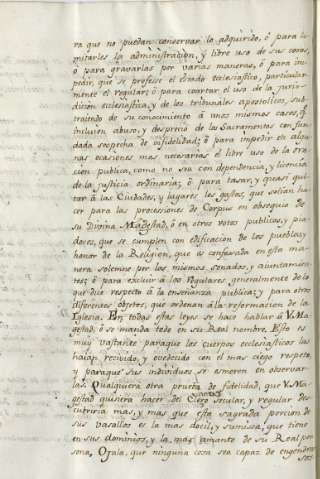 ra que no puedan conservar lo adquirido, ó para li
mitarles la administracion, y libre uso de sus cosas,
ó para gravarlas por varias maneras, ó para im
pedir, que se professe el Estado ecclesiastico, particular
mente el regular; ó para coartar el uso de la juris
diccion ecclesiastica, y de los tribunales apostolicos, sub
trayendo de su conocimiento á unos mismos casos, q.
incluien abuso, y desprecio de los Sacramentos con fun
dada sospecha de infidelidad; ó para impedir en algu
nas ocasiones mas necesarias el libre uso de la ora
cion publica, como no sea con dependencia, y licencia
de la justicia ordinaria; ó para tasar, y quasi qui
tar á las Ciudades, y lugares los gastos, que solian ha
cer para las procesiones de Corpus en obsequio de
su Divina Magestad, ó en otros votos publicos, y pia
dosos, que se cumplen con edificacion de los pueblos, y
honor de la Religion, que es confesada en esta ma
nera solemne por los mismos Senados, y aiuntamien
tos; ó para excluir á los regulares generalmente de lo
que dice respecto á la enseñanza publica; y para otros
diferentes objetos, que ordenan á la reformacion de la
Iglesia. En todas estas leyes se hace hablar á V. Ma
gestad, ó se manda todo en su Real nombre. Esto es
muy bastante paraque los cuerpos ecclesiasticos las
haian recivido, y evedecido con el mas ciego respeto,
y paraque sus individuos se esmeren en observar
las. Qualquiera otra prueba de fidelidad, que V. Ma
gestad quisiera hacer del Clero secular, y regular des
cubriria mas, y mas que esta sagrada porcion de
sus vasallos es la mas docil, y sumisa, que tiene
en sus dominios, y la mas amante de su Real per
sona. Ojala, que ninguna cosa sea capaz de engendrar